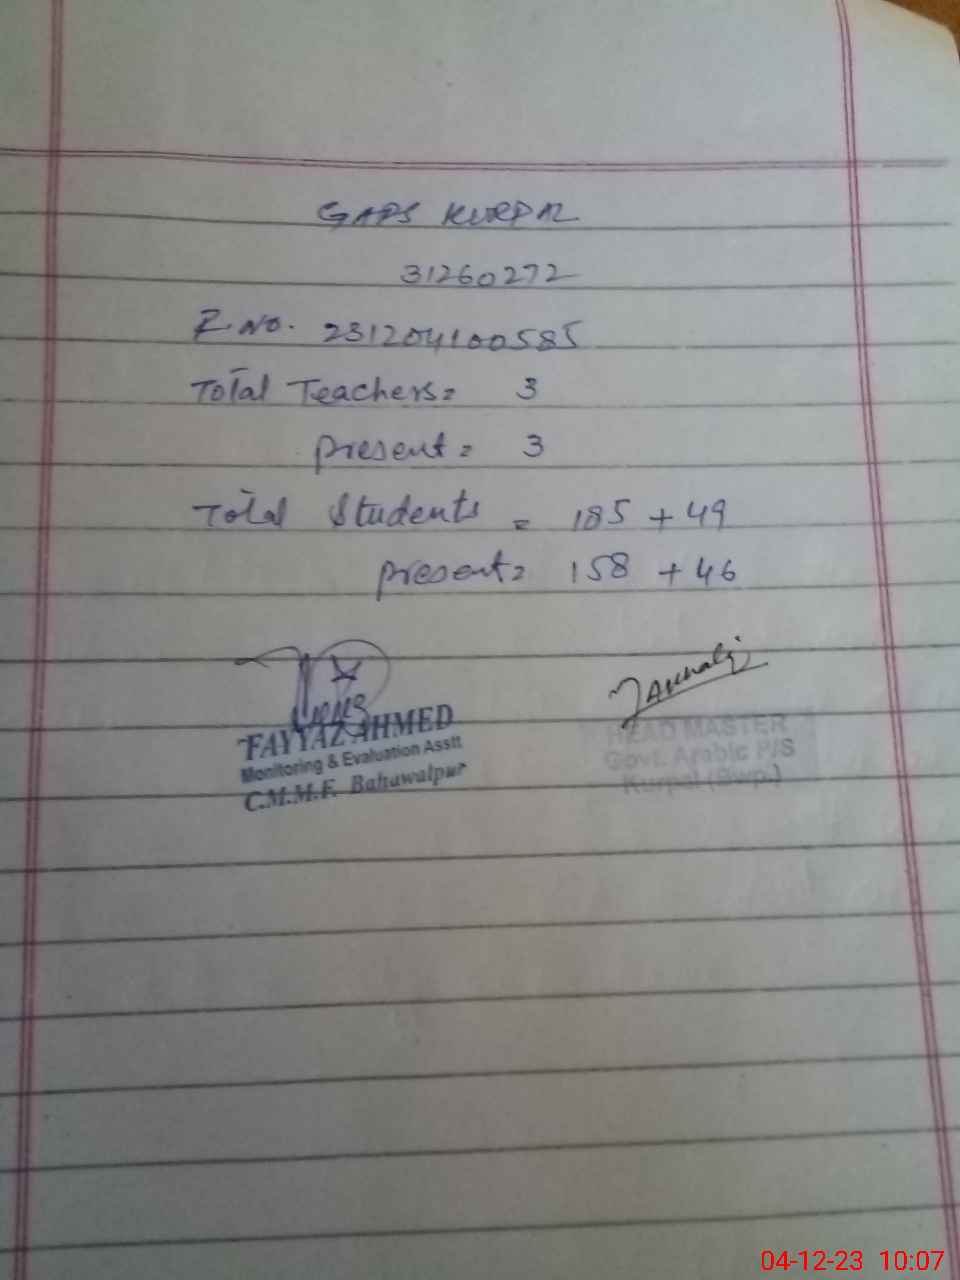 GAPS KURPAL
31260272
R.No. 231204100585
Total Teachers = 3
present = 3
Total Students = 185 + 49
present = 158 + 46
FAYYAZ AHMED
Monitoring & Evaluation Asstt
C.M.M.F. Bahawalpur
HEAD MASTER
Govt. Arabic P/S
Kurpal (Bwp.)
04-12-23 10:07